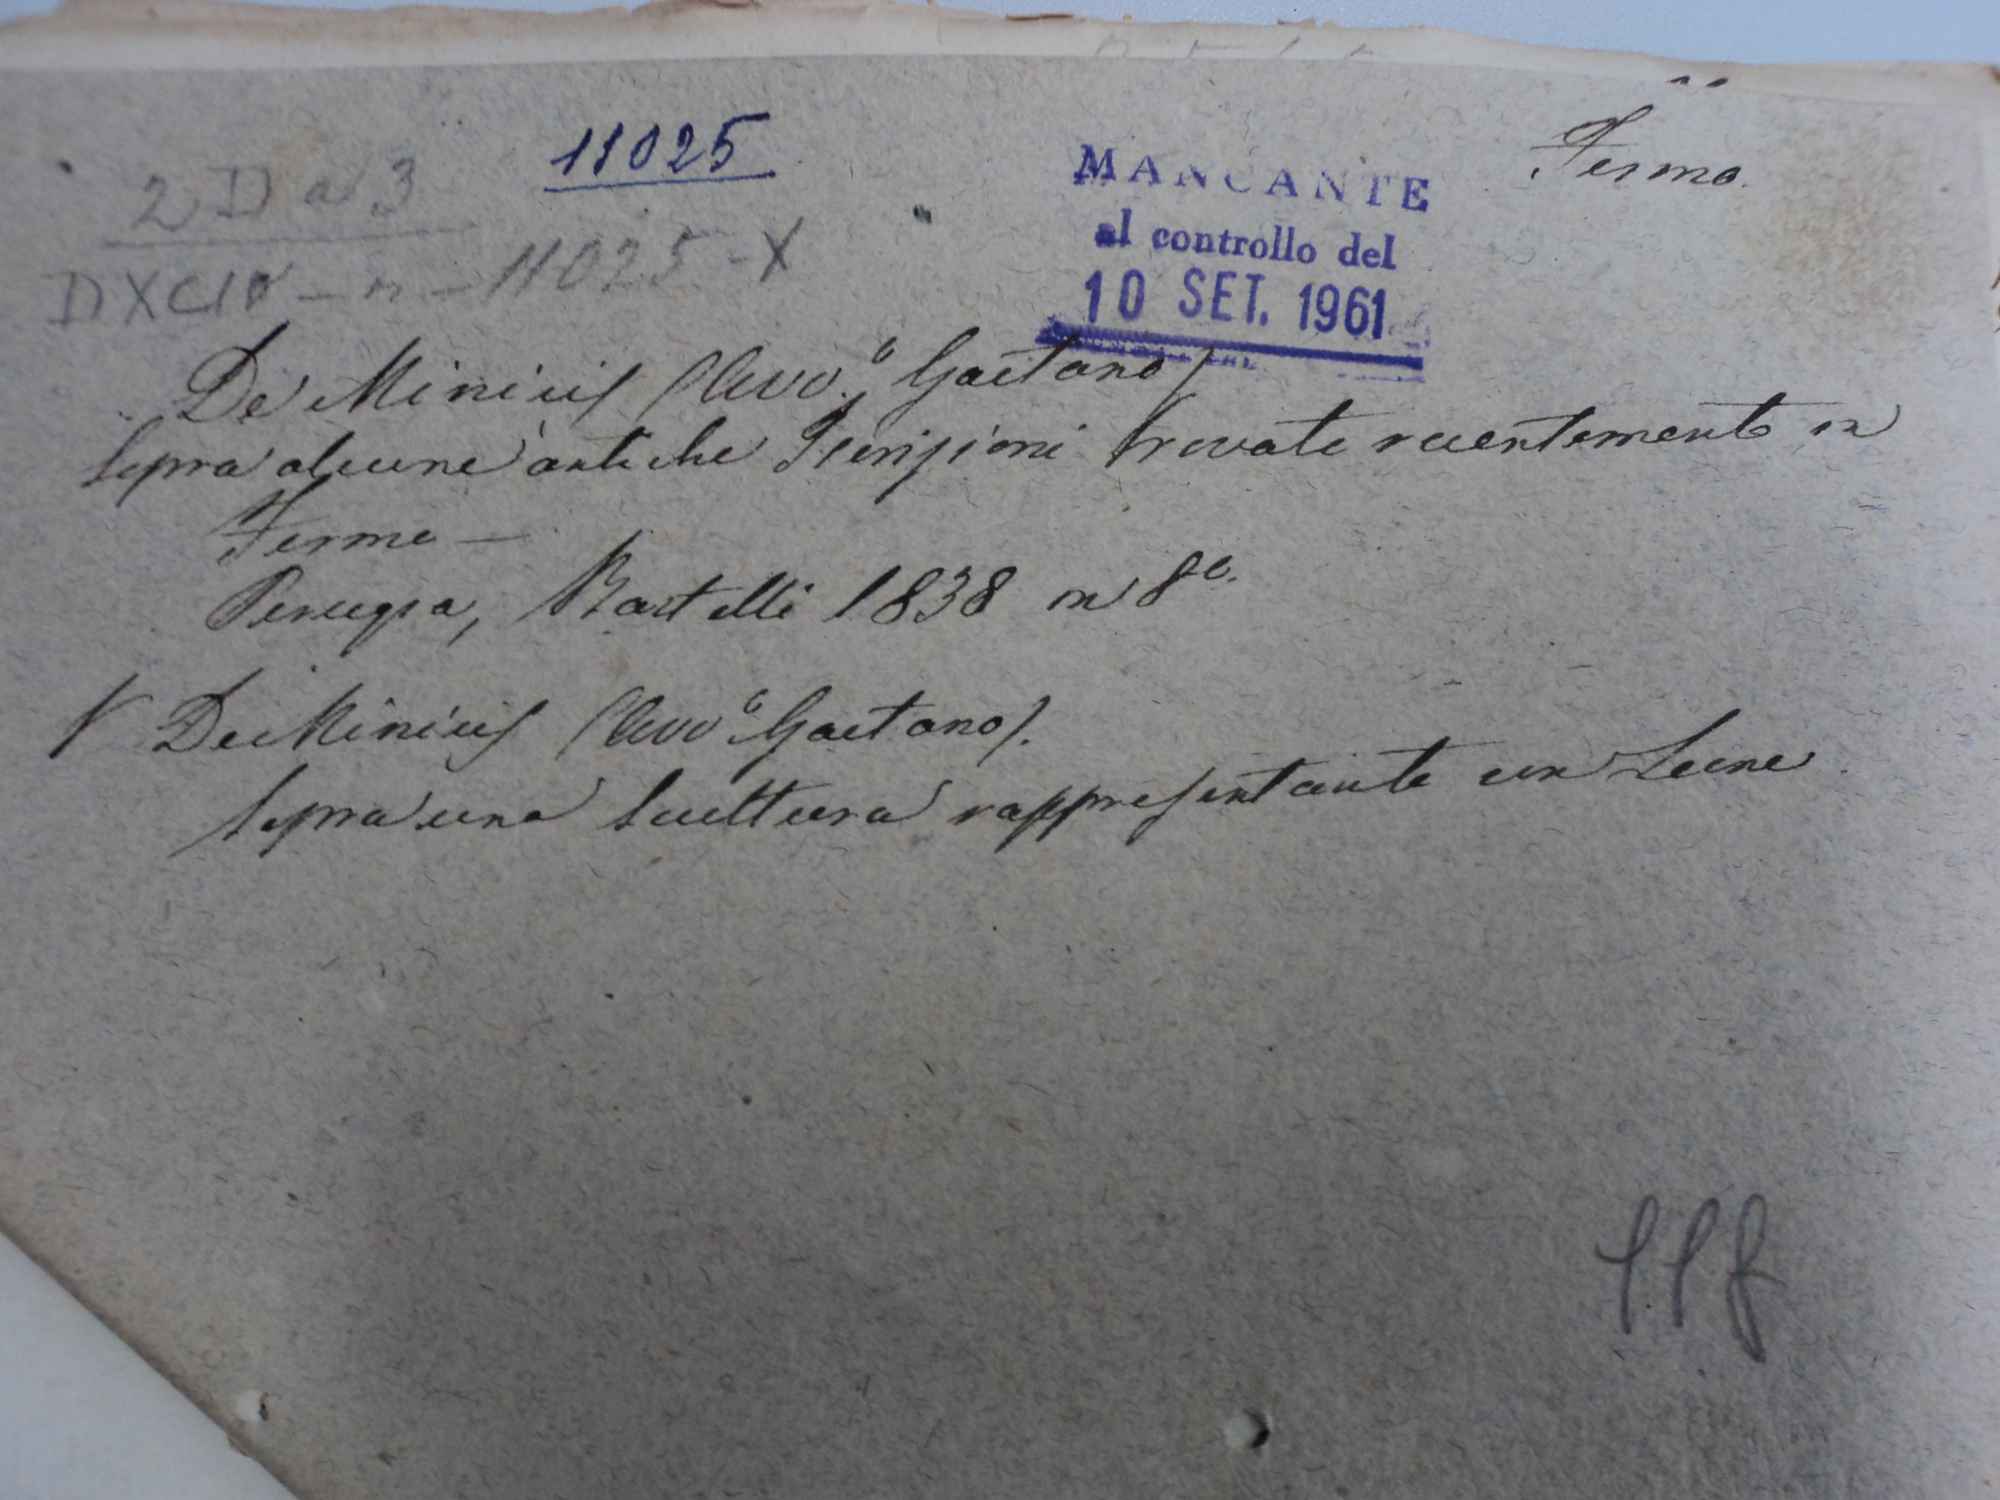 11025
Fermo.
2 D a 3
DXCIV - n - 11025 - X
MANCANTE
al controllo del
10 SET. 1961
De Minicis (Avv.º Gaetano)
Sopra alcune antiche Iscrizioni trovate recentemente in
Fermo —
Perugia, Bartelli 1838 in 8º.
De Minicis (Avvº Gaetano).
Sopra una Scultura rappresentante un Leone